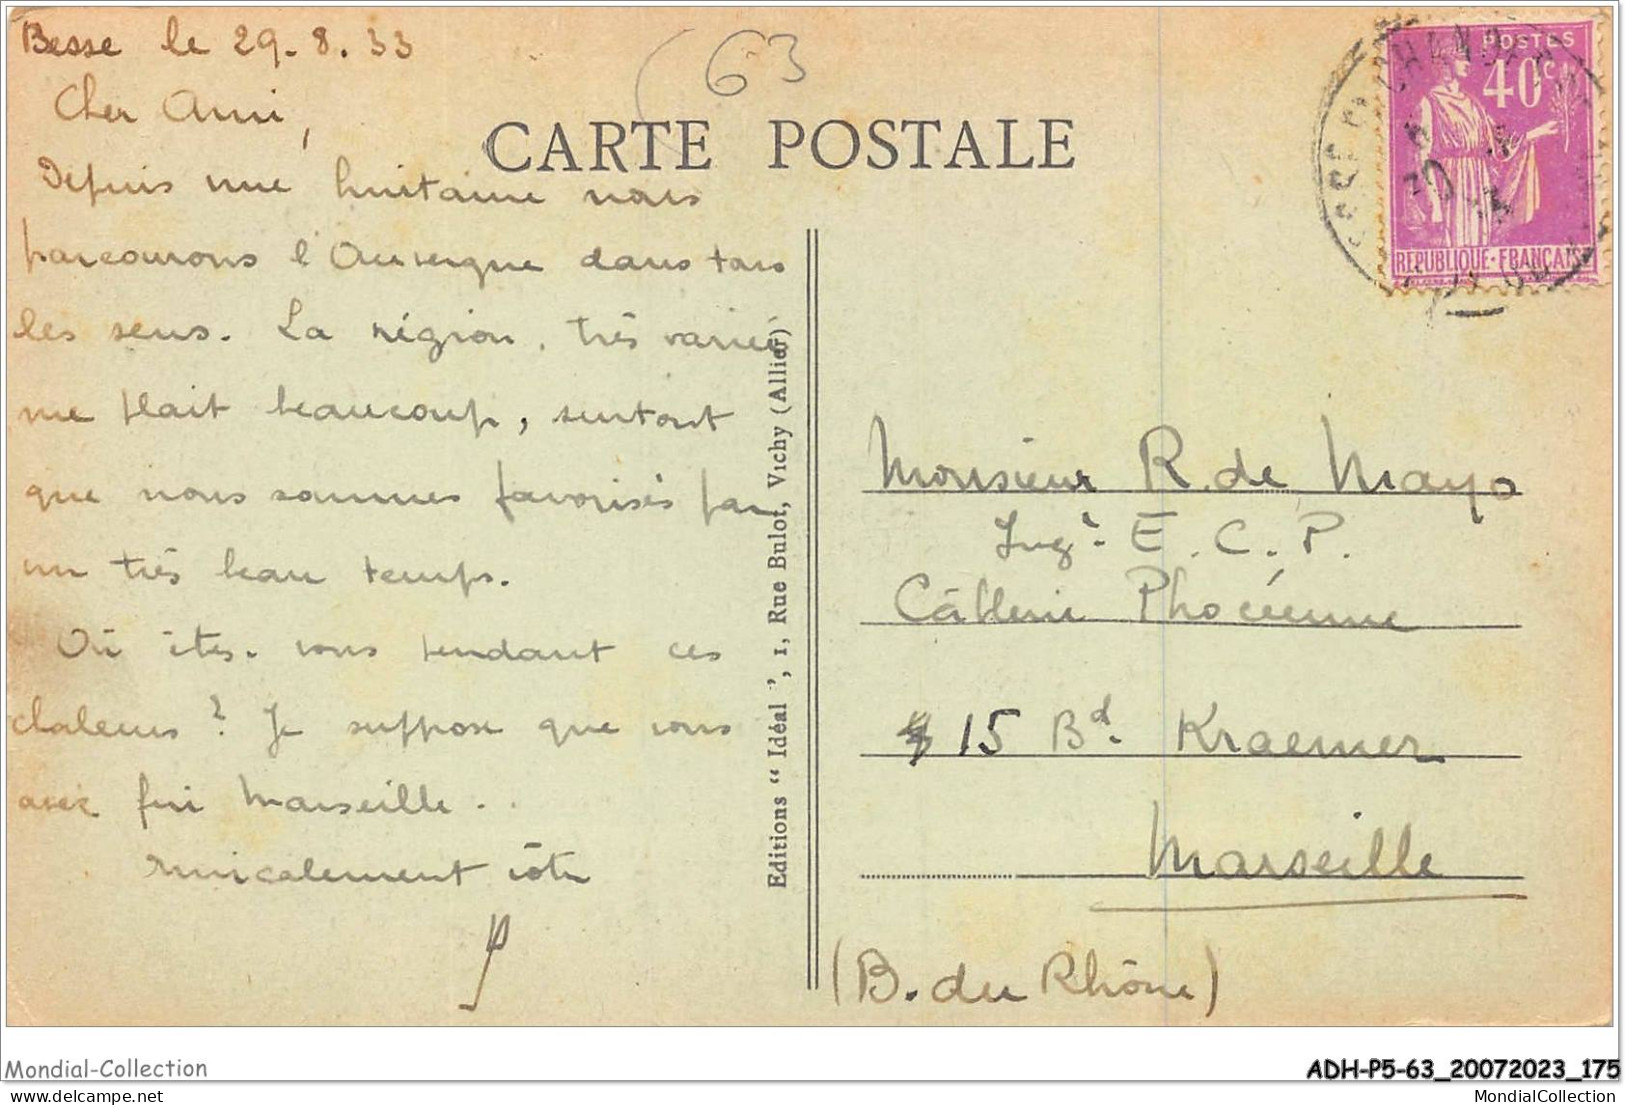 Besse le 29.8.33
(63
Cher Ami,
CARTE POSTALE
Depuis une huitaine nous
parcourons l'Auvergne dans tous
les sens. La région, très variée
me plait beaucoup, surtout
que nous sommes favorisés par
un très beau temps.
Où êtes-vous pendant ces
chaleurs? Je suppose que vous
avez fui Marseille.
Amicalement vôtre
Editions "Idéal", 1, Rue Bulot, Vichy (Allier)
POSTES
40c
REPUBLIQUE·FRANÇAISE
Monsieur R. de Mayo
Ingr. E.C.P.
Câblerie Phocéenne
15 Bd. Kraemer
Marseille
(B. du Rhône)
Mondial-Collection
ADH-P5-63_20072023_175
MondialCollection
MondialCollection